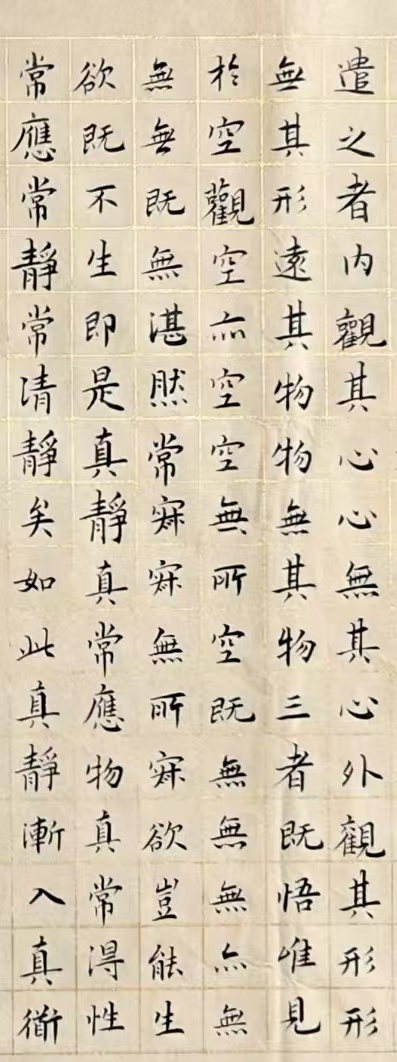 遣之者内觀其心心無其心外觀其形形
無其形遠其物物無其物三者既悟唯見
於空觀空亦空空無所空既無無無亦無
無無既無湛然常寂寂無所寂欲豈能生
欲既不生即是真靜真常應物真常得性
常應常靜常清靜矣如此真靜漸入真衜